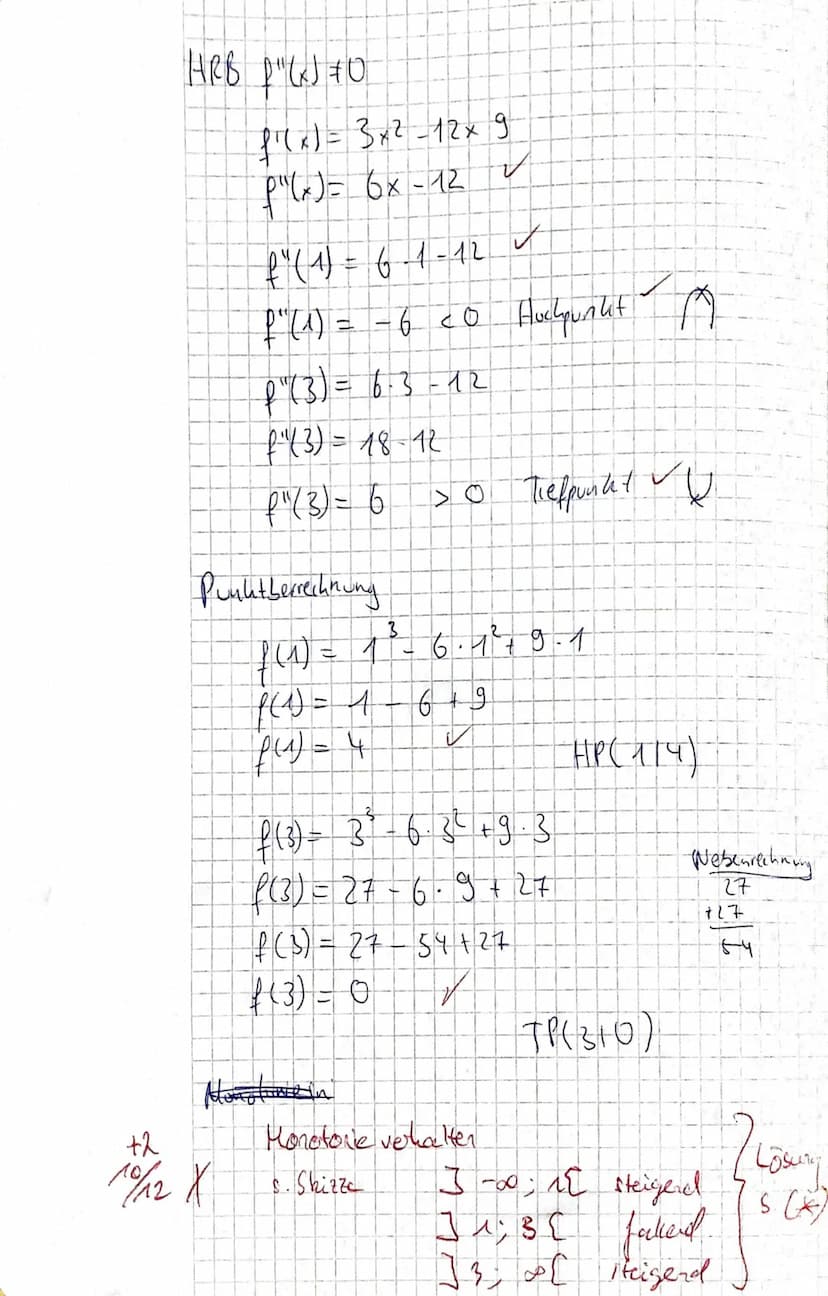 HRB f''(x) ≠ 0
f'(x) = 3x² - 12x 9
f''(x) = 6x - 12 ✓
f''(1) = 6 · 1 - 12 ✓
f''(1) = -6 < 0 Hochpunkt ✓
f''(3) = 6 · 3 - 12
f''(3) = 18 - 12
f''(3) = 6 > 0 Tiefpunkt ✓
Punktberrechnung
f(1) = 1³ - 6 · 1² + 9 · 1
f(1) = 1 - 6 + 9
f(1) = 4 ✓
HP(1|4)
f(3) = 3³ - 6 · 3² + 9 · 3
f(3) = 27 - 6 · 9 + 27
f(3) = 27 - 54 + 27
f(3) = 0 ✓
Nebenrechnung
27
+27
54
TP(3|0)
Monotonie verhalten
+2
10/12
s. Skizze ]-∞; 1[ steigend
]1; 3[ fallend
]3; ∞[ steigend
Lösung
s (*)